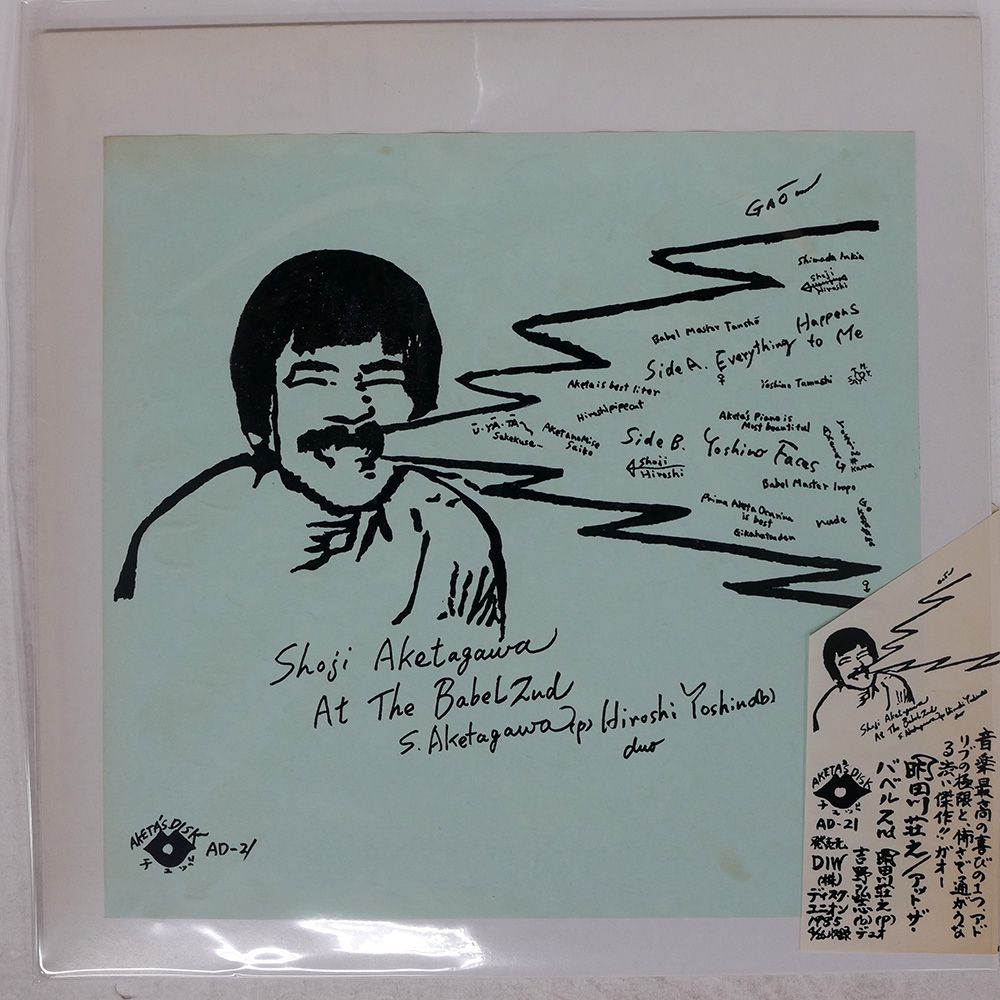 GAŌ
Shimada Inkin
Shoji
Hiroshi
Babel Master Tanshō
Side A. Everything Happens
to Me
Aketa is best liter
Yoshino Tamashi
Hiroshi pipecut
Ū・YĀ・TĀ
Sakekuse
Aketa no Mise
Saiko
Aketa's Piano is
Most beautiful
Side B. Yoshino Faces
Shoji
Hiroshi
Babel Master Impo
Prima Aketa Ocarina
is best
nude
Gikahatanden
Shoji Aketagawa
At The Babel 2nd
S. Aketagawa (p) Hiroshi Yoshino (b)
duo
AKETA'S DISK
AD-21
Shoji Aketagawa
At The Babel 2nd
S. Aketagawa (p) Hiroshi Yoshino
duo
音楽最高の喜びの1つ、アド
リブの極限と、怖さで通がうな
る渋い傑作!!ガオー
明田川荘之/アット・ザ・
バベル 2nd
明田川荘之(p)
吉野弘志(b)デュオ
AKETA'S DISK
AD-21
発売元
DIW
(株)
ディスク
ユニオン
1985